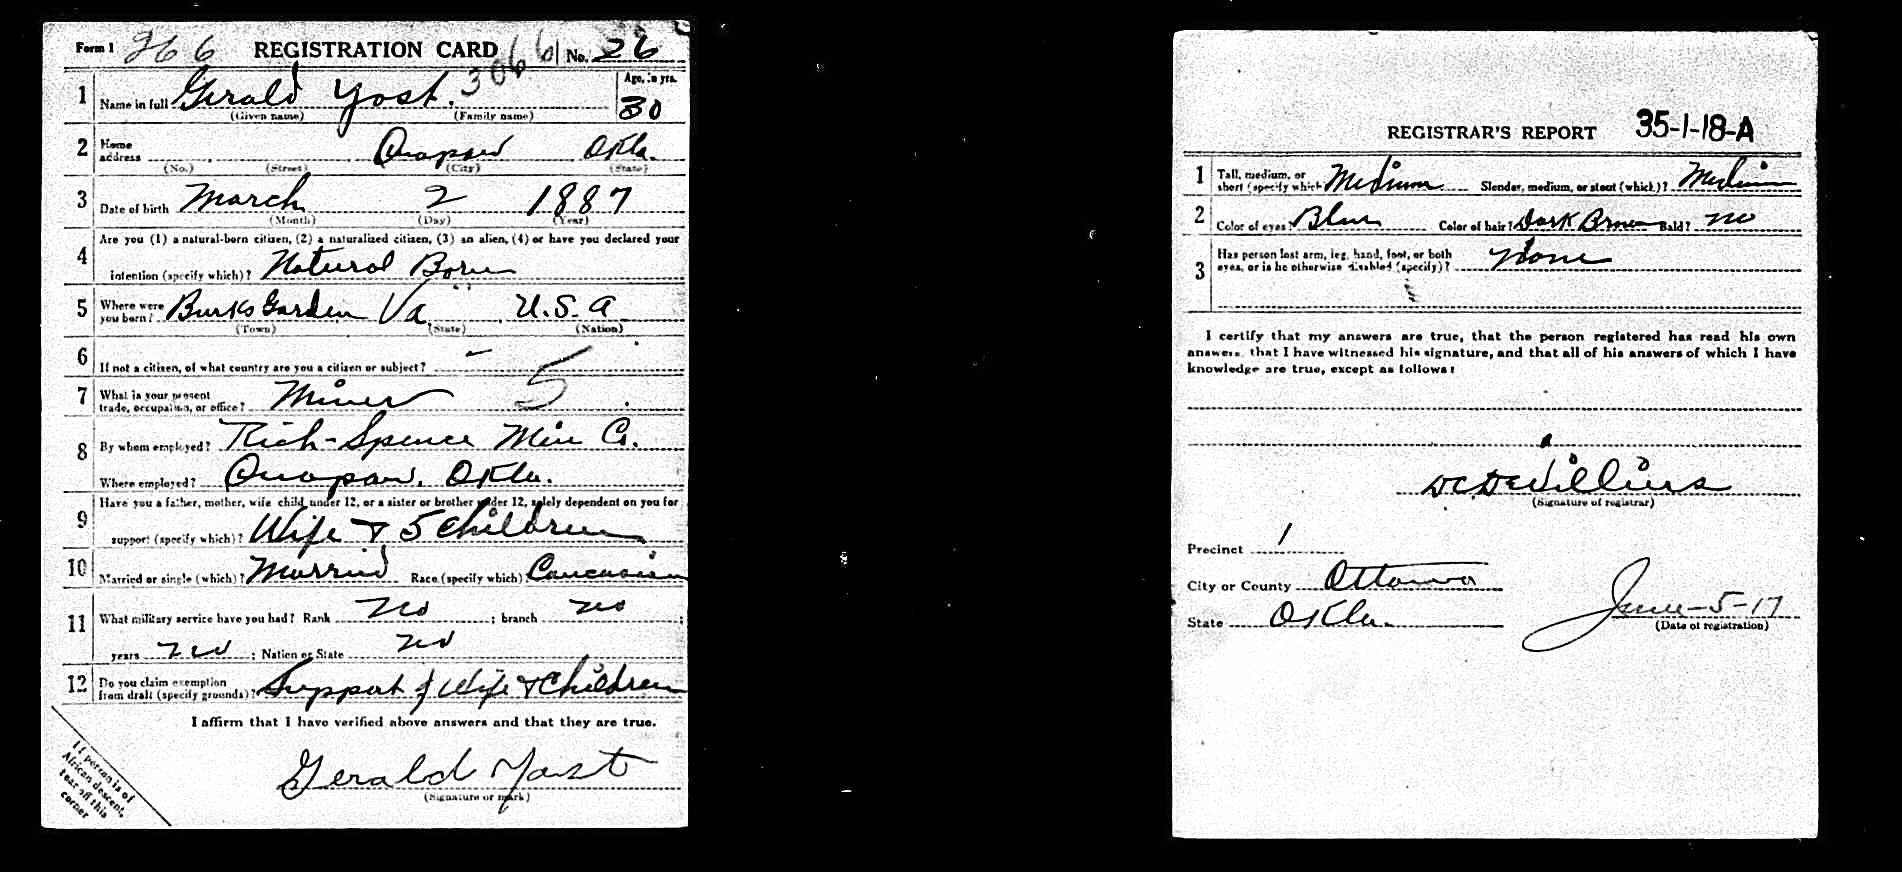 Form 1 266 REGISTRATION CARD 3066 No. 26
1 Name in full Gerald Yost. Age, in yrs. 30
(Given name) (Family name)
2 Home address Quapaw Okla.
(No.) (Street) (City) (State)
3 Date of birth March 2 1887
(Month) (Day) (Year)
4 Are you (1) a natural-born citizen, (2) a naturalized citizen, (3) an alien, (4) or have you declared your
intention (specify which)? Natural Born
5 Where were you born? Burks Garden Va. U.S.A
(Town) (State) (Nation)
6 If not a citizen, of what country are you a citizen or subject? -
7 What is your present trade, occupation, or office? Miner 5
8 By whom employed? Rich-Spence Min Co.
Where employed? Quapaw. Okla.
9 Have you a father, mother, wife child under 12, or a sister or brother under 12, solely dependent on you for
support (specify which)? Wife & 5 Children
10 Married or single (which)? Married Race (specify which)? Caucasian
11 What military service have you had? Rank no ; branch no ;
years no ; Nation or State no
12 Do you claim exemption from draft (specify grounds)? Support of Wife & Children
I affirm that I have verified above answers and that they are true.
Gerald Yost
(Signature or mark)
If person is of
African descent,
tear off this
corner
REGISTRAR'S REPORT 35-1-18-A
1 Tall, medium, or short (specify which)? Medium Slender, medium, or stout (which)? Medium
2 Color of eyes? Blue Color of hair? Dark Brown Bald? no
3 Has person lost arm, leg, hand, foot, or both
eyes, or is he otherwise disabled (specify)? None
I certify that my answers are true, that the person registered has read his own
answers, that I have witnessed his signature, and that all of his answers of which I have
knowledge are true, except as follows:
(Signature of registrar)
Precinct 1
City or County Ottawa
State Okla. June-5-17
(Date of registration)